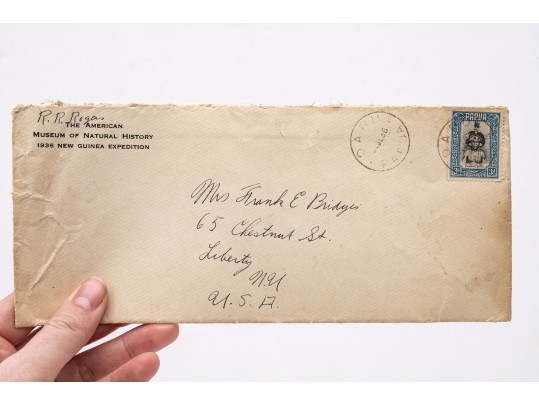 R. R. Rogers
THE AMERICAN
MUSEUM OF NATURAL HISTORY
1936 NEW GUINEA EXPEDITION
DARU
PAPUA
PAPUA
Mrs Frank E Bridges
65 Chestnut St.
Liberty
N.Y.
U.S.A.